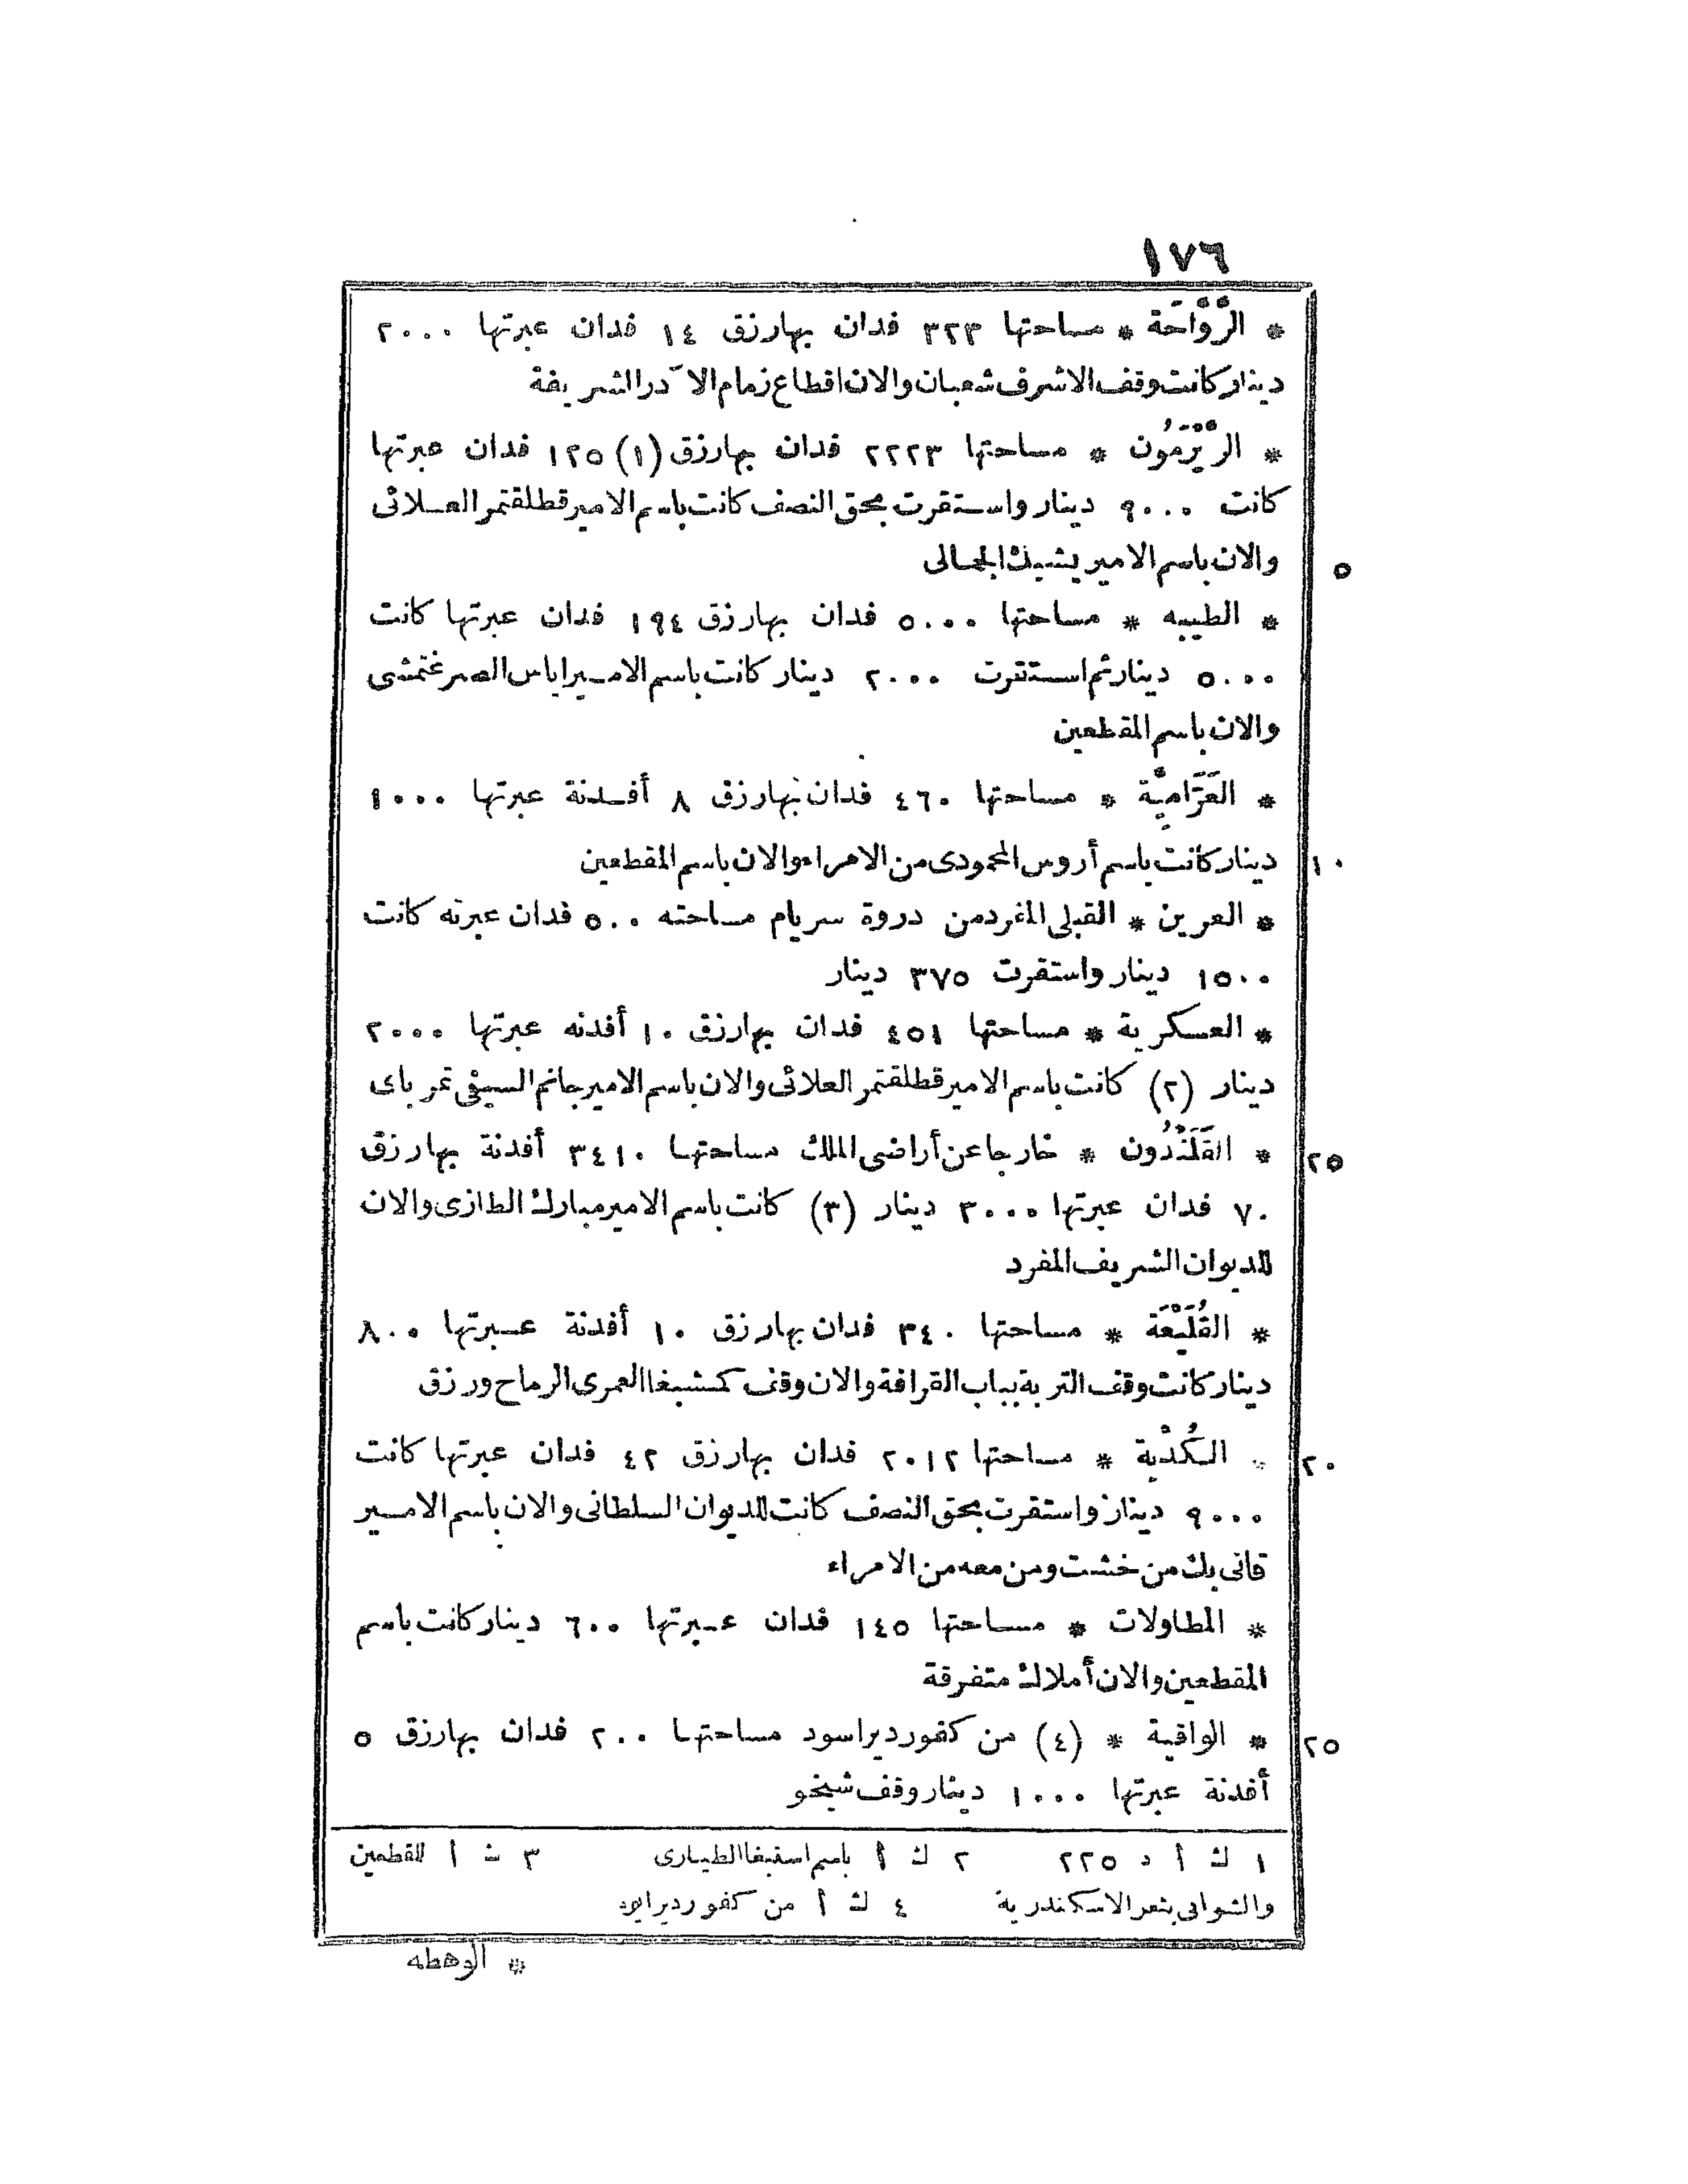 ١٧٦
* الرَّوَّاحَة * مساحتها ٣٢٣ فدان بها رزق ١٤ فدان عبرتها ٢٠٠٠
دينار كانت وقف الاشرف شعبان والان اقطاع زمام الآدر الشريفة
* الرَّيْرَمُون * مساحتها ٢٢٢٣ فدان بها رزق (١) ١٢٥ فدان عبرتها
كانت ٩٠٠٠ دينار واستقرت بحق النصف كانت باسم الامير قطلقتمر العلائى
والان باسم الامير يشبك الجمالى
٥
* الطيبه * مساحتها ٥٠٠٠ فدان بها رزق ١٩٤ فدان عبرتها كانت
٥٠٠٠ دينار ثم استقرت ٢٠٠٠ دينار كانت باسم الامير اياس الصرغتمشى
والان باسم المقطعين
* العَرَّامِيَّة * مساحتها ٤٦٠ فدان بها رزق ٨ أفدنة عبرتها ١٠٠٠
دينار كانت باسم أروس المحمودى من الامراء والان باسم المقطعين
١٠
* العرين * القبلى المفرد من دروة سريام مساحته ٥٠٠ فدان عبرته كانت
١٥٠٠ دينار واستقرت ٣٧٥ دينار
* العسكرية * مساحتها ٤٥١ فدان بها رزق ١٠ أفدنه عبرتها ٢٠٠٠
دينار (٢) كانت باسم الامير قطلقتمر العلائى والان باسم الامير جانم السيفى تمر باى
* القَلَنْدُون * خارجا عن أراضى الملك مساحتها ٣٤١٠ أفدنة بها رزق
٢٥
٧٠ فدان عبرتها ٣٠٠٠ دينار (٣) كانت باسم الامير مبارك الطازى والان
للديوان الشريف المفرد
* القُلَيْعَة * مساحتها ٣٤٠ فدان بها رزق ١٠ أفدنة عبرتها ٨٠٠
دينار كانت وقف التربة بباب القرافة والان وقف كمشبغا العمرى الرماح ورزق
* الكُدْيَة * مساحتها ٢٠١٢ فدان بها رزق ٤٢ فدان عبرتها كانت
٢٠
٩٠٠٠ دينار واستقرت بحق النصف كانت للديوان السلطانى والان باسم الامير
قانى بك من خشت ومن معه من الامراء
* المطاولات * مساحتها ١٤٥ فدان عبرتها ٦٠٠ دينار كانت باسم
المقطعين والان أملاك متفرقة
* الواقية * (٤) من كفور ديراسود مساحتها ٢٠٠ فدان بها رزق ٥
٢٥
أفدنة عبرتها ١٠٠٠ دينار وقف شيخو
١ ك أ د ٢٢٥ ٢ ك أ باسم اسنبغا الطيارى ٣ ث أ للقطعين
والشوابى بثغر الاسكندرية ٤ ك أ من كفور ديرابود
* الوهطه